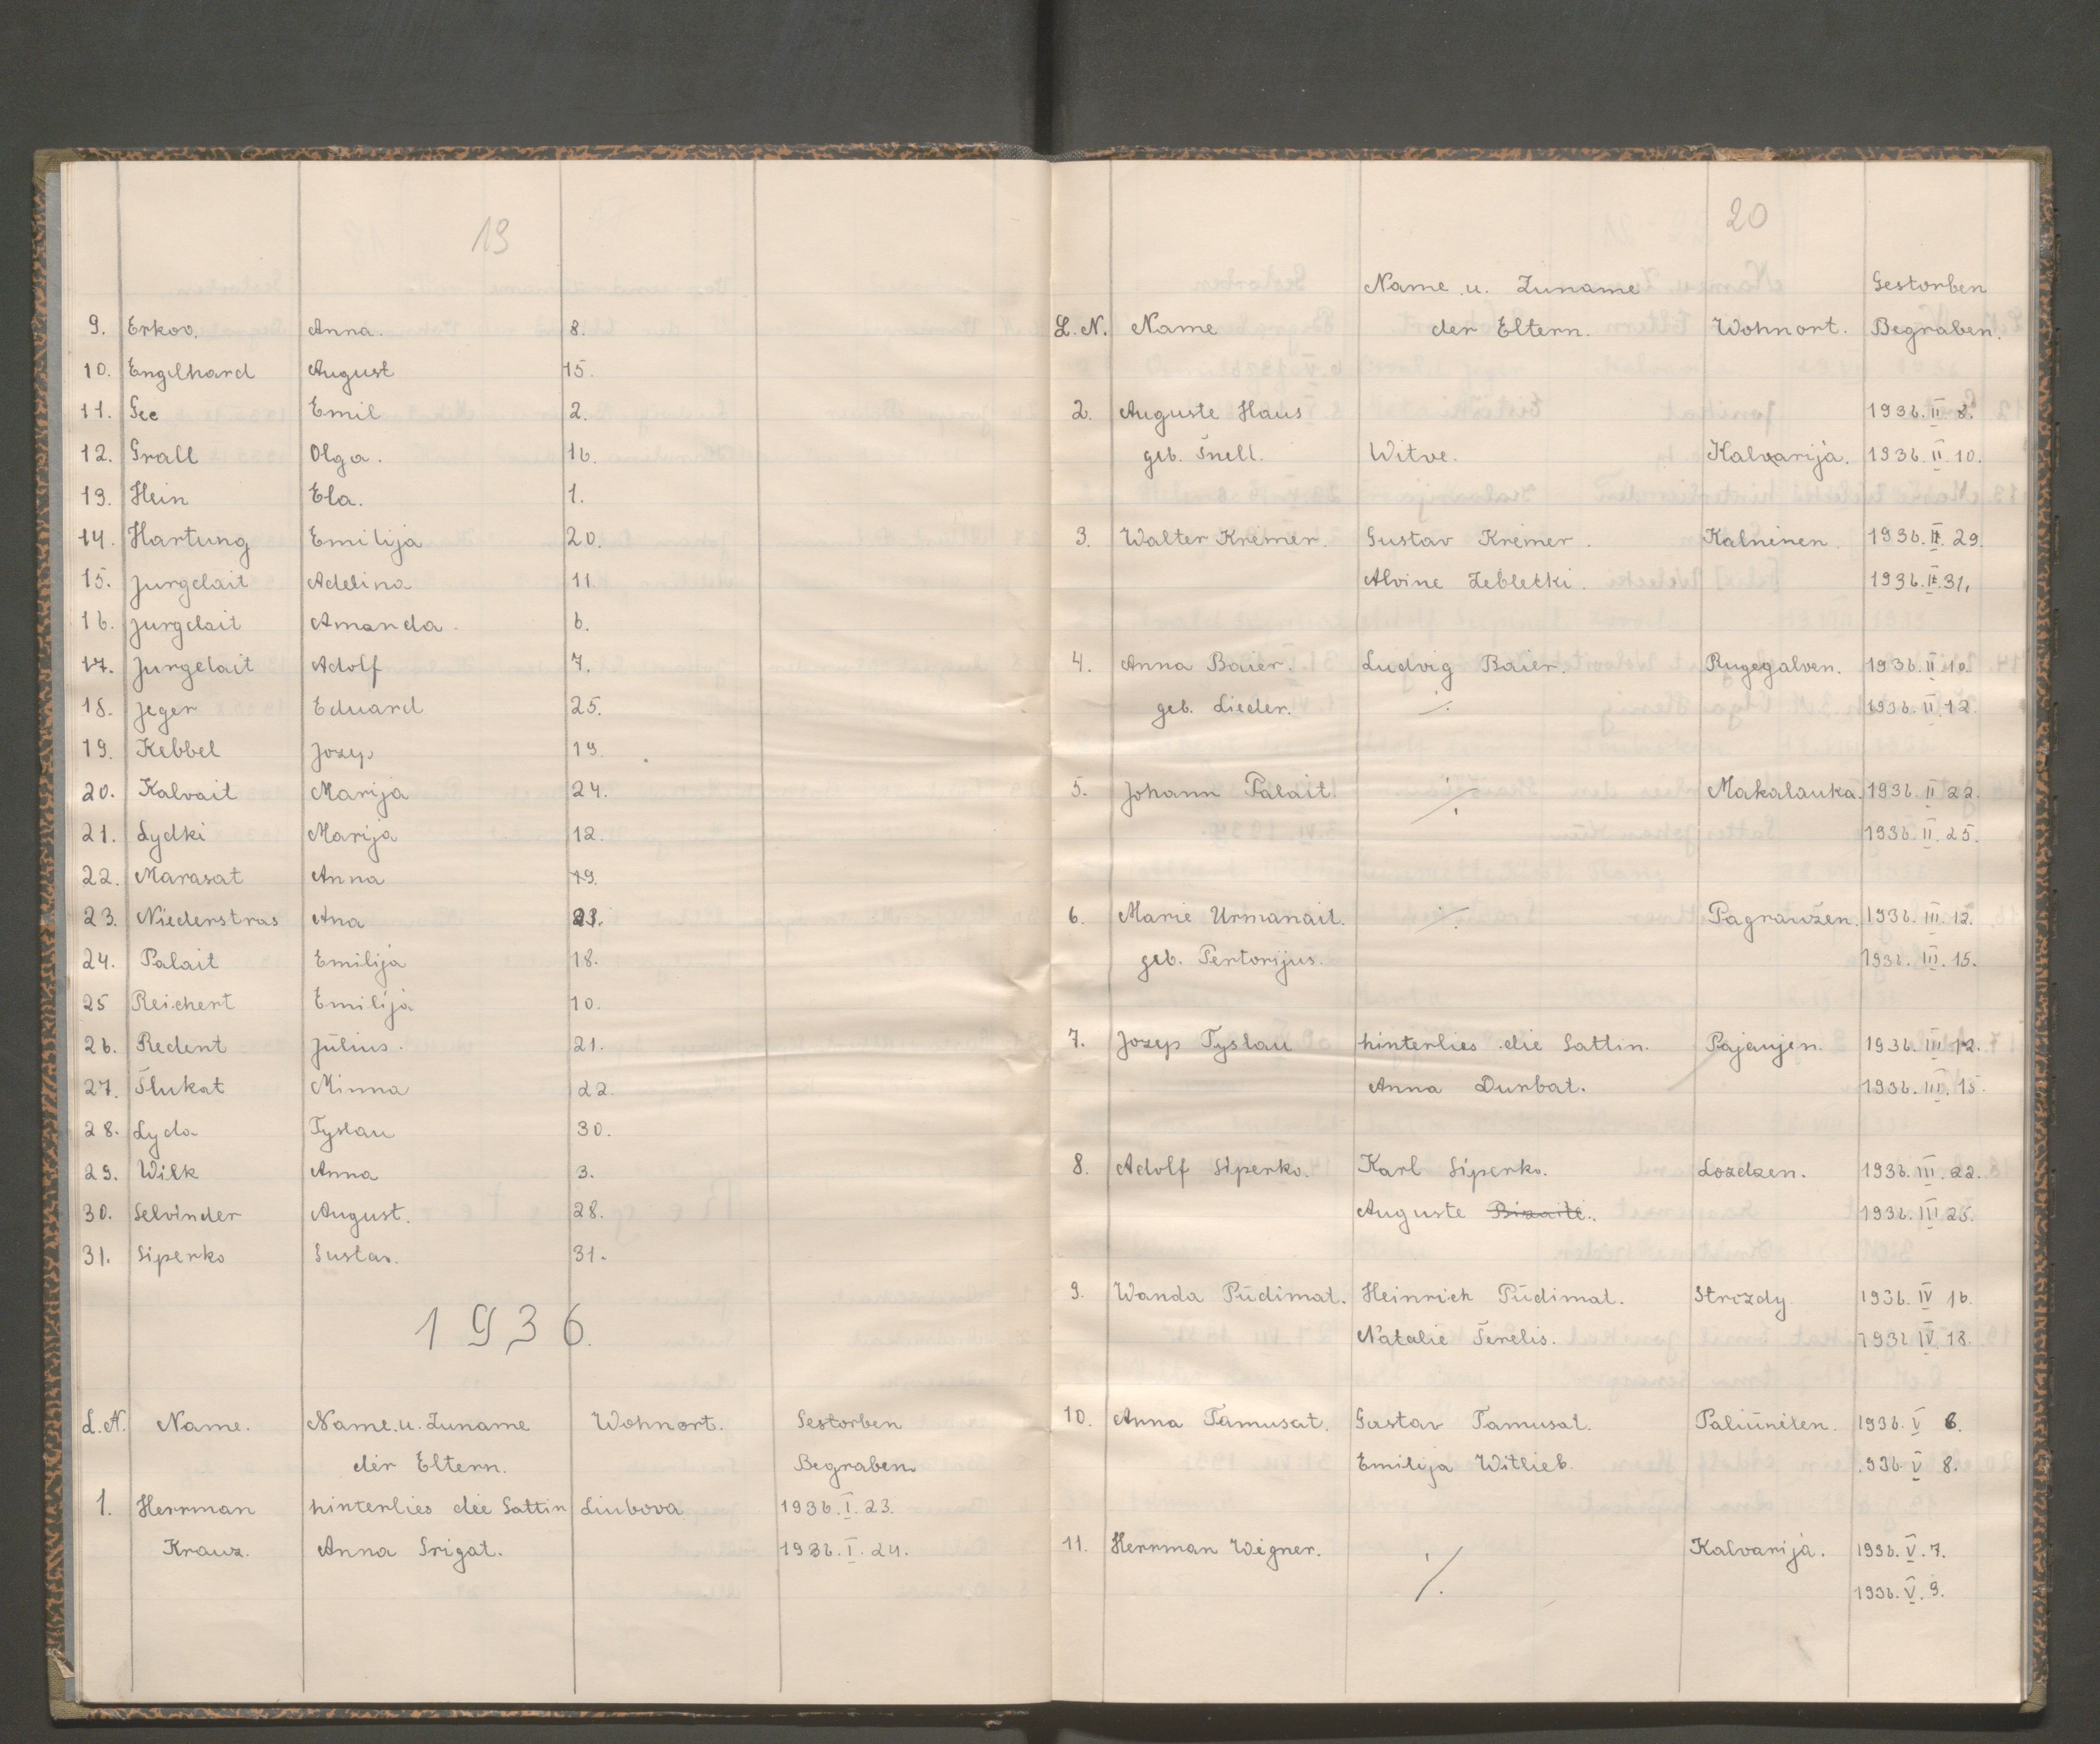 19
9. Erkov. Anna. 8.
10. Engelhard August 15.
11. Gee Emil 2.
12. Grall Olga. 16.
13. Hein Ela. 1.
14. Hartung Emilija 20.
15. Jurgelait Adelina 11.
16. Jurgelait Amanda. 6.
17. Jurgelait Adolf 7.
18. Jeger Eduard 25.
19. Kebbel Jozep 19.
20. Kalvait Marija 24.
21. Lydki Marija 12.
22. Marasat Anna 19.
23. Niederstras Ana 23.
24. Palait Emilija 18.
25 Reichert Emilija 10.
26. Redent Julius. 21.
27. Šlukat Minna 22.
28. Lyda Tyslau 30.
29. Wilk Anna 3.
30. Selvinder August. 28.
31. Siperko Gustav. 31.
1936.
L.N. Name. Name u. Zuname Wohnort. Gestorben
der Eltern. Begraben
1. Herrman hinterlies die Gattin Liubova 1936. I. 23.
Krauz. Anna Grigat. 1936. I. 24.
20
Name u. Zuname Gestorben
L.N. Name der Eltern. Wohnort. Begraben.
2. Auguste Haus 1936. II 8.
geb. Šnell. Witve. Kalvarija. 1936. II. 10.
3. Walter Kremer. Gustav Kremer. Kalninen. 1936. II. 29.
Alvine Zebletki. 1936. II. 31.
4. Anna Baier. Ludvig Baier. Rugegalven. 1936. II. 10.
geb. Lieder. ·/. 1936. II. 12.
5. Johann Palait. ·/. Makalauka. 1936. II 22.
1936. II. 25.
6. Marie Urmanait. ·/. Pagraužen. 1936. III. 12.
geb. Pertorijus. 1936. III. 15.
7. Jozep Tyslau hinterlies die Gattin. Pajaujen. 1936. III 12.
Anna Durbat. 1936. III. 15.
8. Adolf Siperko. Karl Siperko. Lozdzen. 1936. III. 22.
Auguste Bizaite. 1936. III 25.
9. Wanda Pudimat. Heinrich Pudimat. Strozdy. 1936. IV 16.
Natalie Šerelis. 1936 IV. 18.
10. Anna Tamusat. Gustav Tamusat. Paliuniten. 1936. V 6.
Emilija Witlieb. 1936 V 8.
11. Herrman Wegner. ·/. Kalvarija. 1936. V. 7.
1936. V. 9.